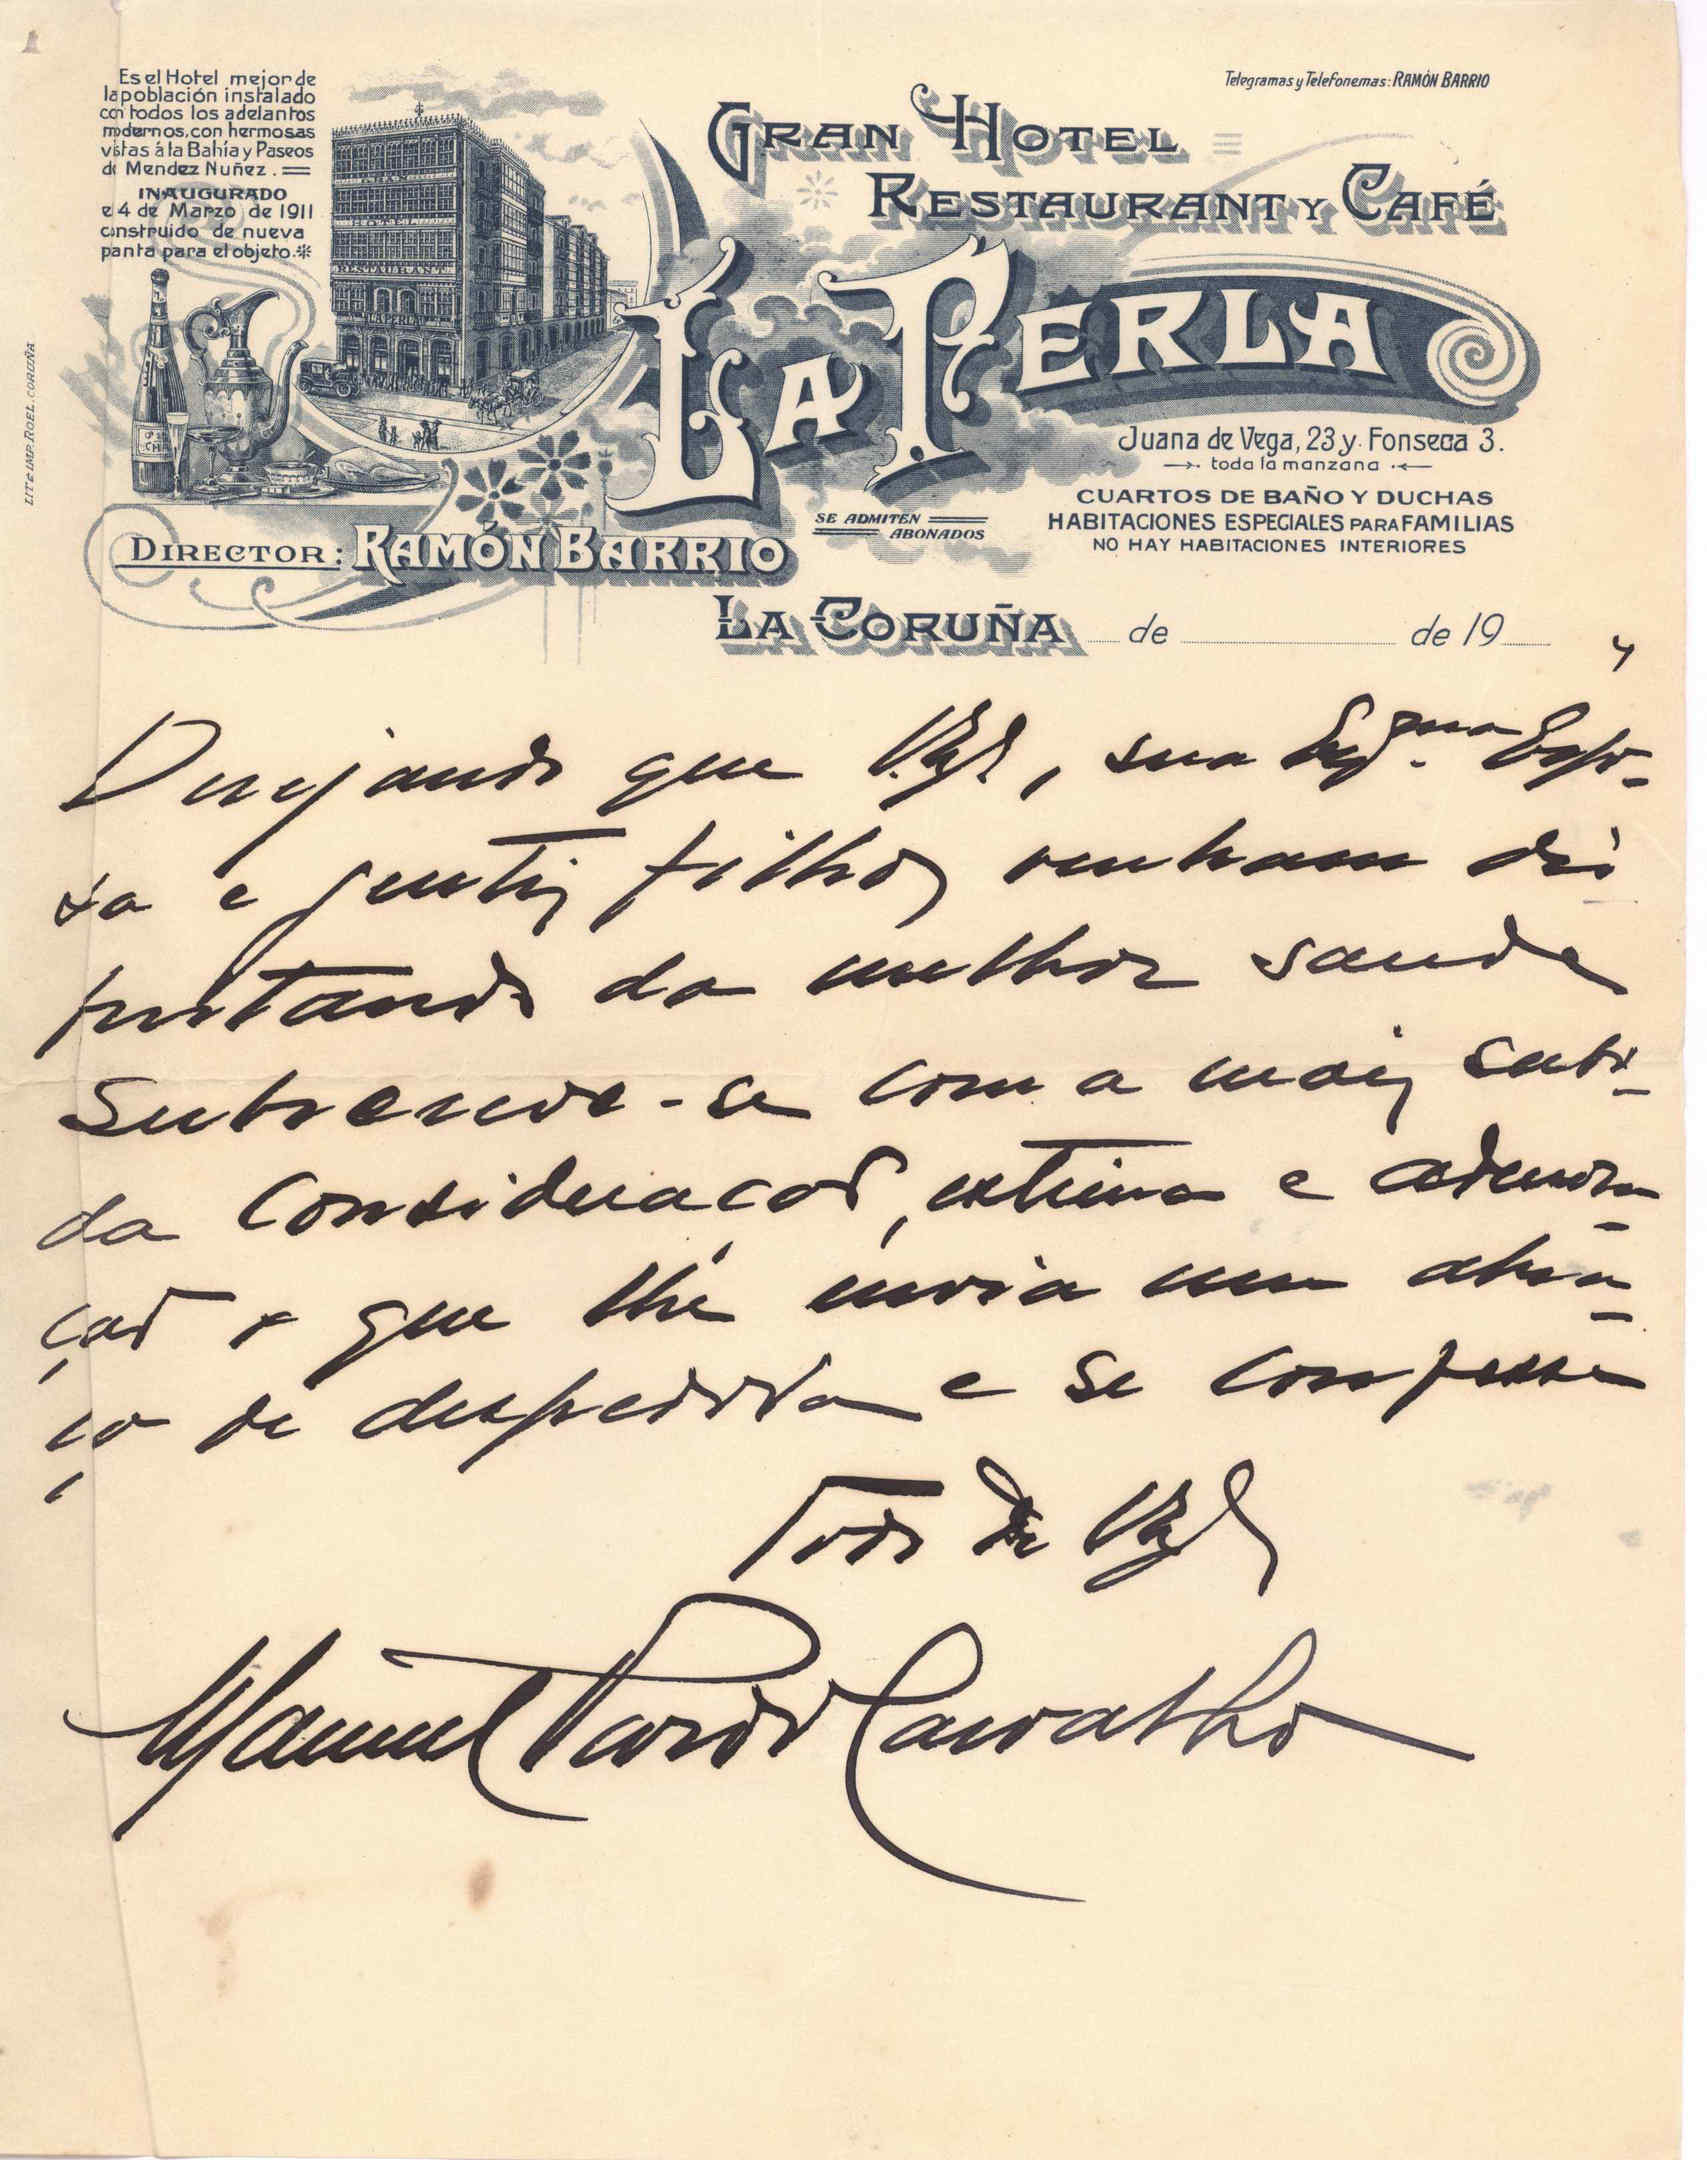 Telegramas y Telefonemas: RAMÓN BARRIO
Es el Hotel mejor de
la población instalado
con todos los adelantos
modernos, con hermosas
vistas á la Bahía y Paseos
de Mendez Nuñez.
INAUGURADO
e 4 de Marzo de 1911
construido de nueva
panta para el objeto.
GRAN HOTEL
RESTAURANT Y CAFÉ
LA PERLA
GRAN
HOTEL
RESTAURANT
LA PERLA
Juana de Vega, 23 y Fonseca 3.
toda la manzana
CUARTOS DE BAÑO Y DUCHAS
HABITACIONES ESPECIALES PARA FAMILIAS
NO HAY HABITACIONES INTERIORES
SE ADMITEN
ABONADOS
DIRECTOR: RAMÓN BARRIO
LIT. é IMP. ROEL. CORUÑA
LA CORUÑA de de 19
4
Desejando que , sua Espo-
sa e gentis filhos venham dis
frutando da melhor saude
Subscreve-se com a mais subi-
da consideração, estima e admira-
ção o que lhe invia um abra-
ço de despedida e se confessa
Todo de
Manuel Pardo Carvalho